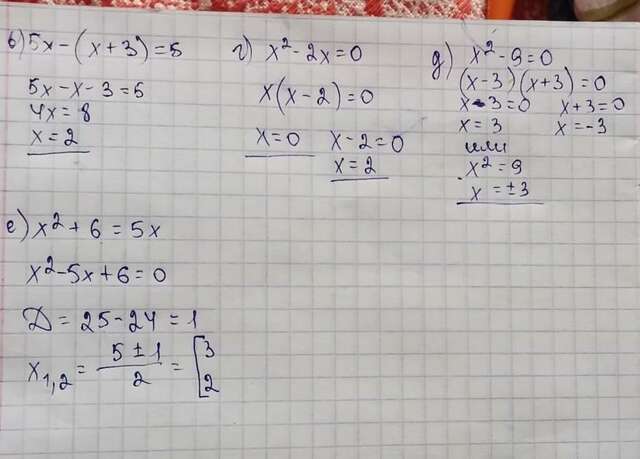 в) 5x-(x+3)=5
5x-x-3=5
4x=8
x=2
г) x²-2x=0
x(x-2)=0
x=0 x-2=0
x=2
д) x²-9=0
(x-3)(x+3)=0
x-3=0 x+3=0
x=3 x=-3
или
x²=9
x=±3
е) x²+6=5x
x²-5x+6=0
D=25-24=1
x₁,₂=(5±1)/2=[3
2